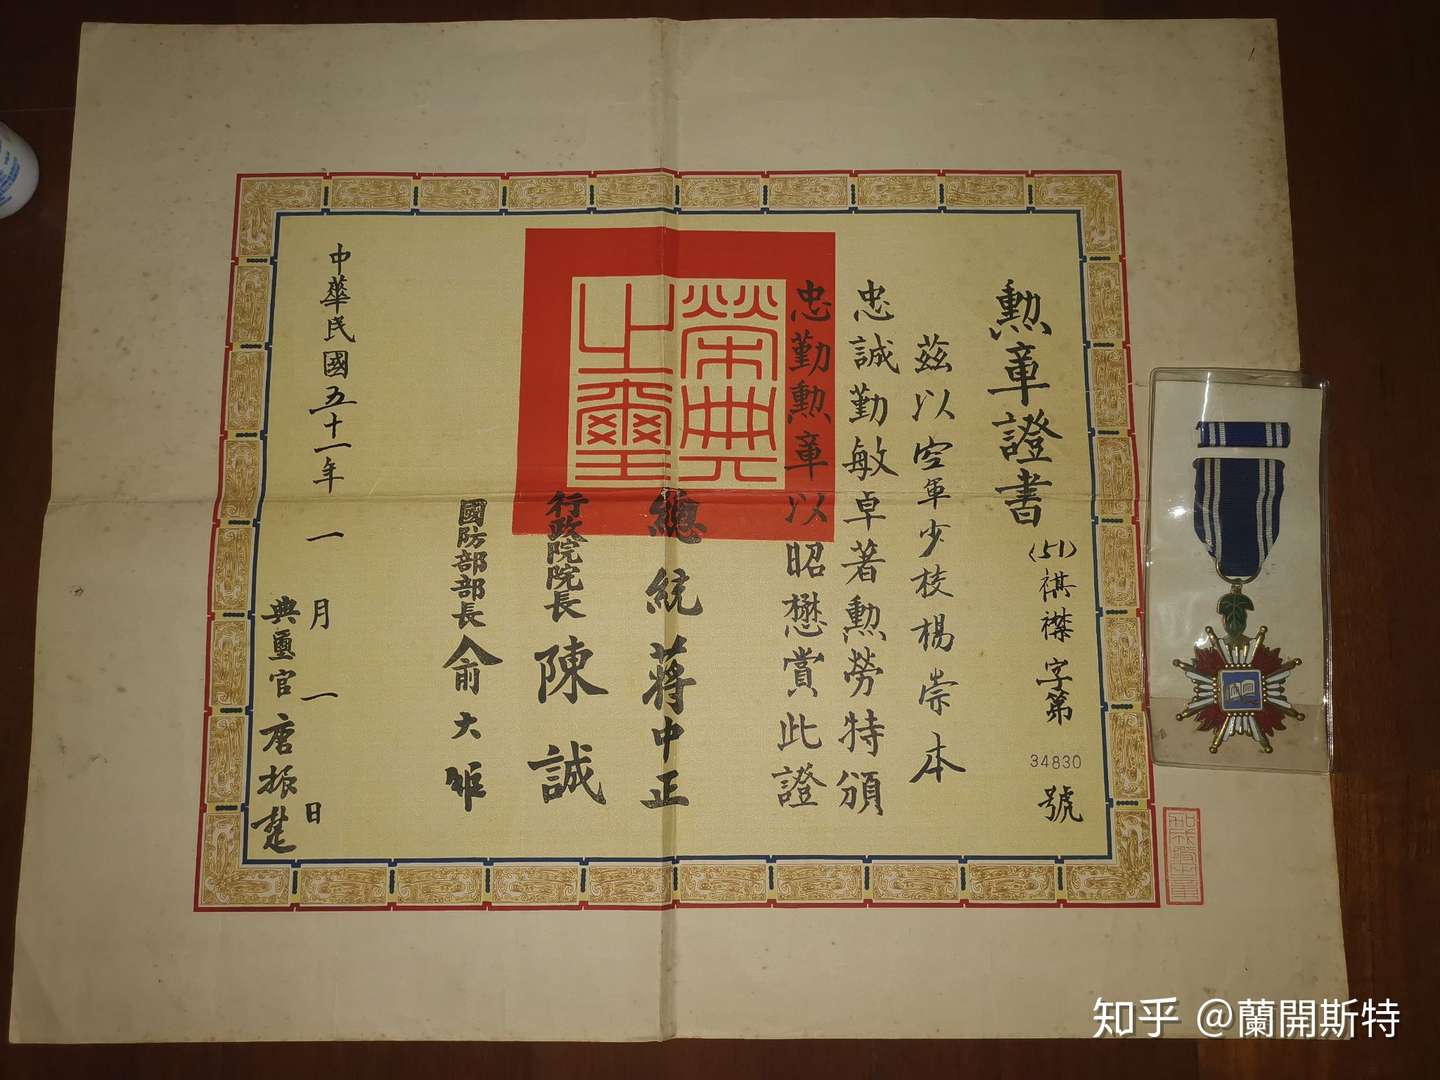 勲章證書
(51)祺襟字第34830號
茲以空軍少校楊崇本
忠誠勤敏卓著勲勞特頒
忠勤勲章以昭懋賞此證
榮典之璽
總統蔣中正
行政院院長陳誠
國防部部長俞大維
中華民國五十一年一月一日
典璽官唐振楚
知乎 @蘭開斯特